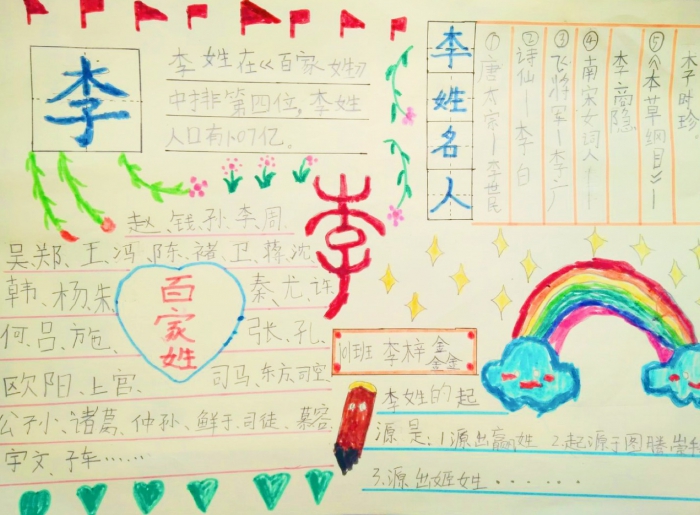 李
李姓在《百家姓》
中排第四位,李姓
人口有1.07亿。
李姓名人
①唐太宗—李世民
②诗仙 李白
③飞将军—李广
④南宋女词人——
李商隐
⑤《本草纲目》—
李时珍。
赵、钱、孙、李、周
吴、郑、王、冯、陈、褚、卫、蒋、沈、
韩、杨、朱 秦、尤、许
何、吕、施、 张、孔、
欧阳、上官、 司马、东方、司空
公孙、诸葛、仲孙、鲜于、司徒、慕容
宇文、子车……
百家姓
李
101班 李梓鑫
李姓的起
源是:1源出嬴姓 2.起源于图腾崇
3.源出姬姓......